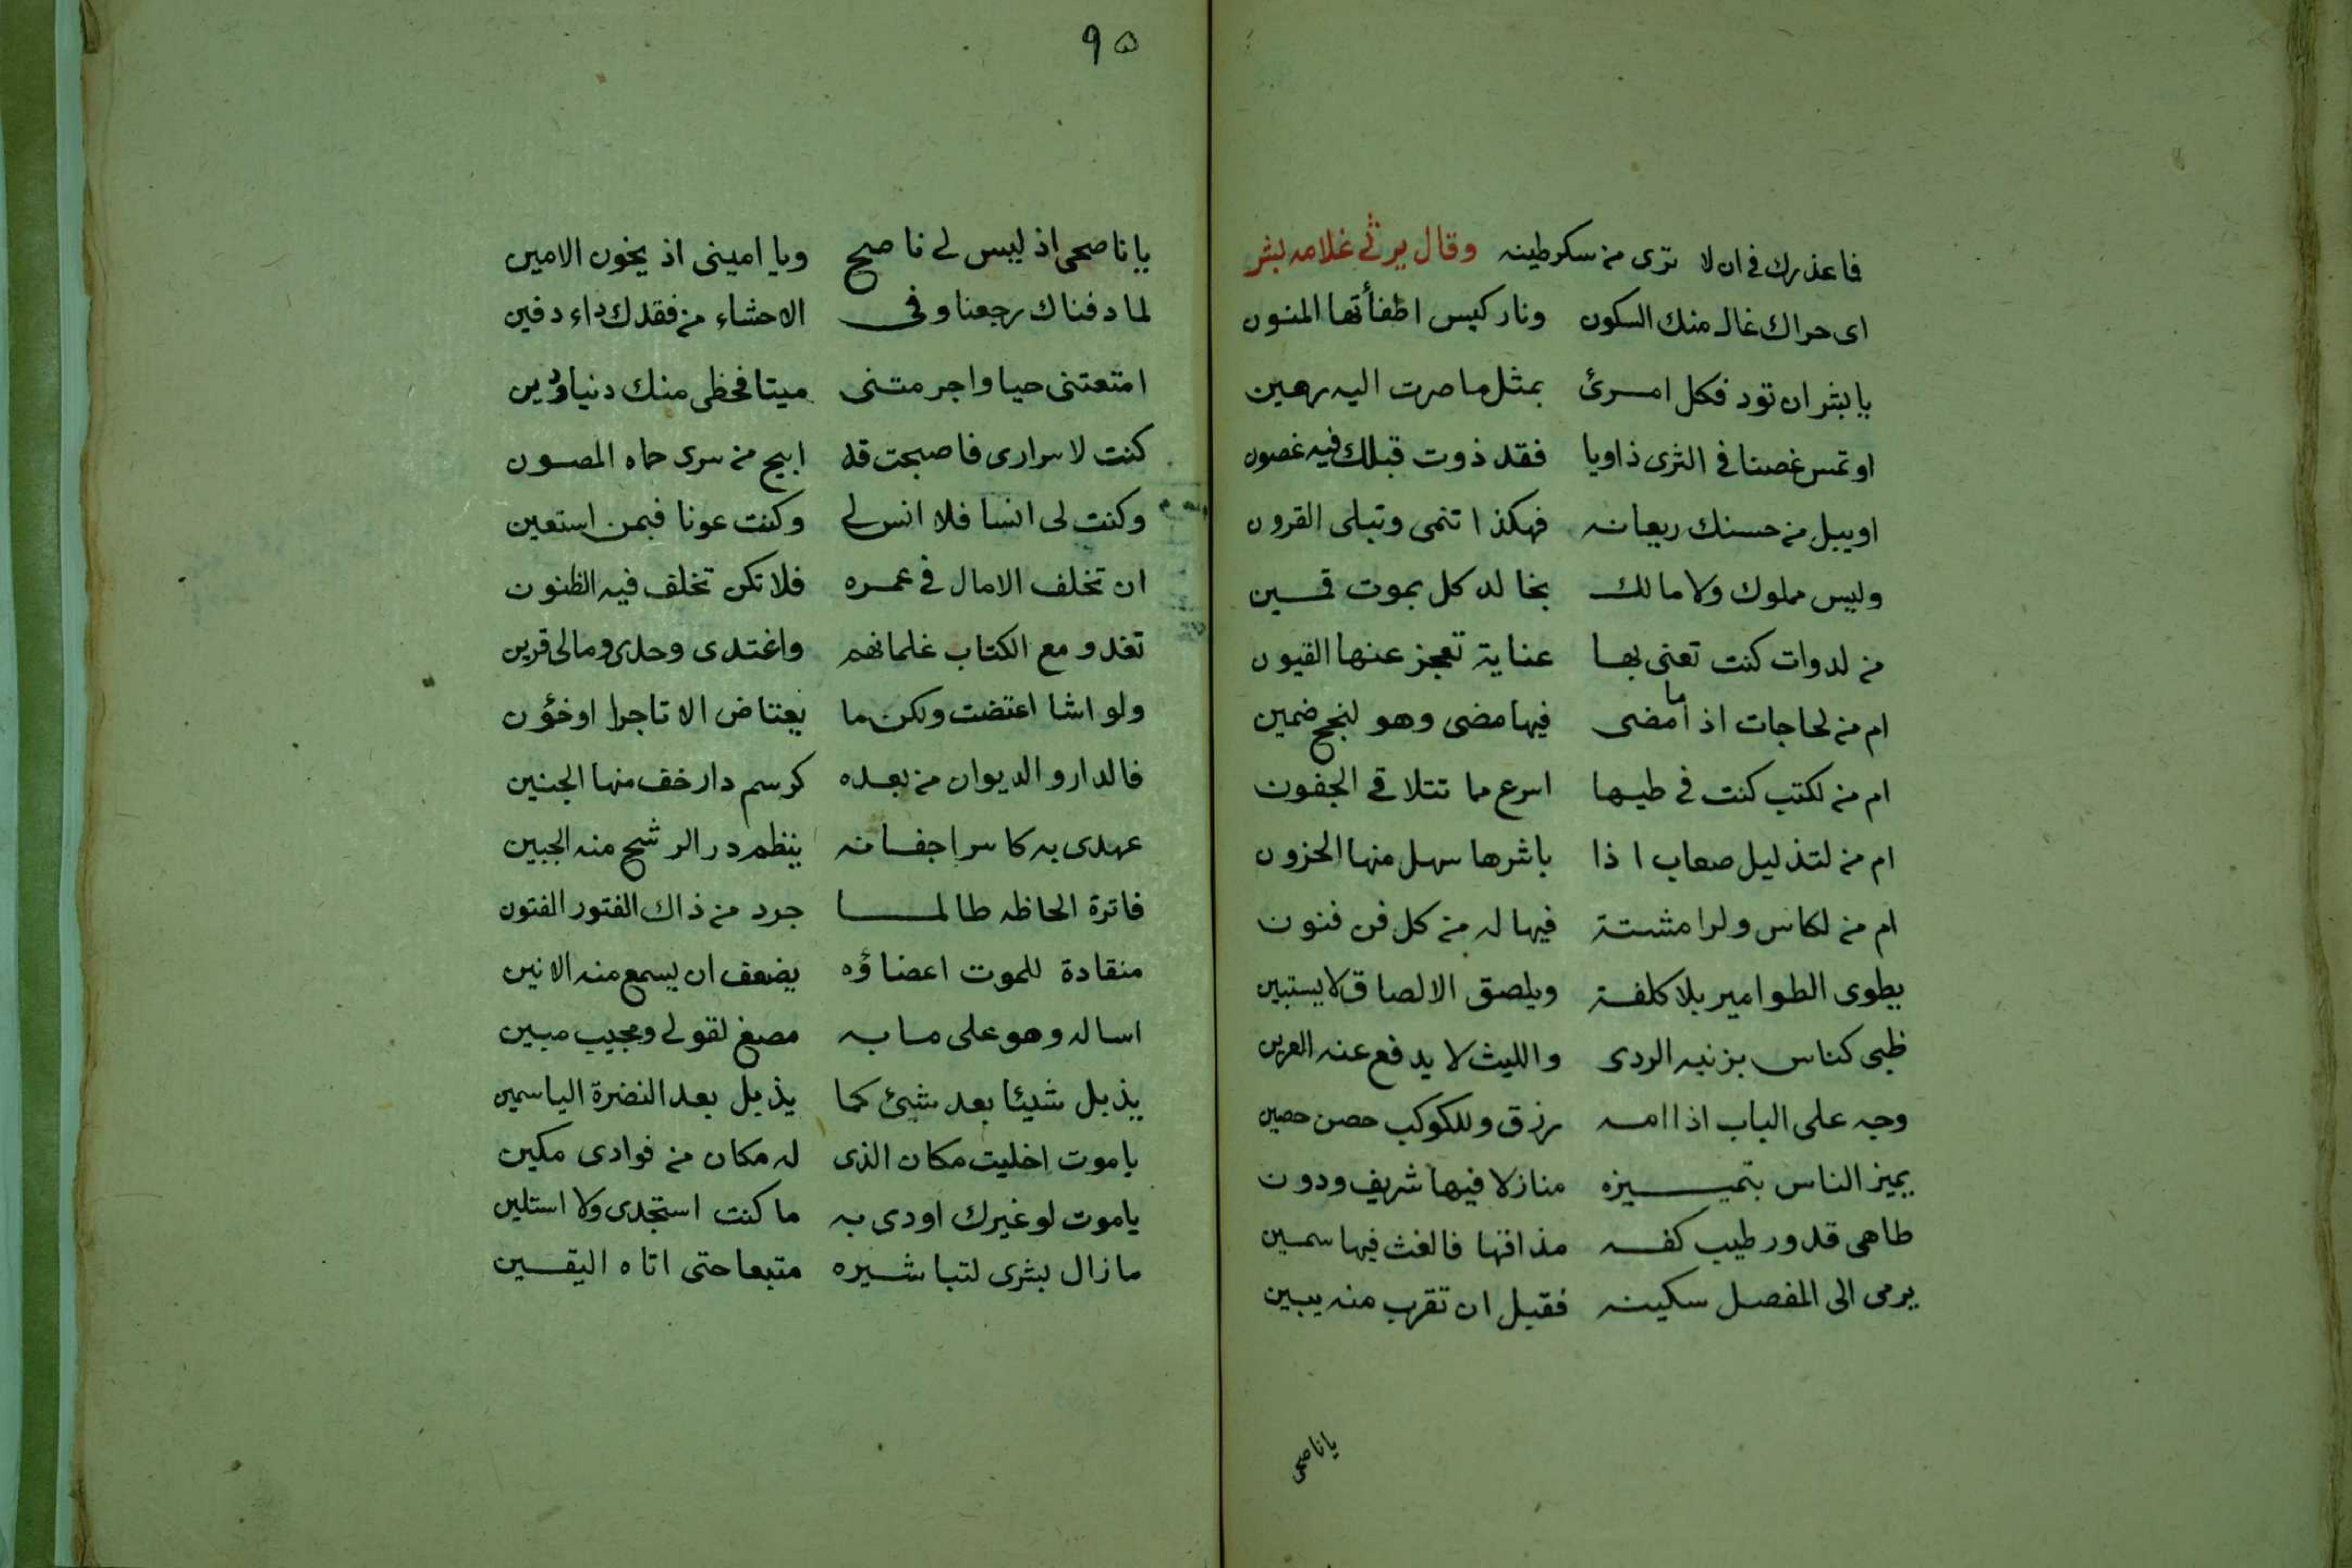 فاعذرك فى ان لا ترى من سكرطينه وقال يرثى غلامه بشر
اى حراك غال منك السكون ونار كيس اطفأتها المنون
يا بشر ان تود فكل امرئ بمثل ما صرت اليه رهين
او تمس غصنا فى الثرى ذاويا فقد ذوت قبلك فيه غصون
او يبل من حسنك ريعانه فهكذا تنمى وتبلى القرون
وليس مملوك ولا مالك بخالد كل بموت قمين
من لدوات كنت تعنى بها عناية تعجز عنها القيون
ام من لحاجات اذا ما مضى فيها مضى وهو لنجح ضمين
ام من لكتب كنت فى طيها اسرع مما تتلاقى الجفون
ام من لتذليل صعاب اذا باشرها سهل منها الحزون
ام من لكاس ولرامشتة فيها له من كل فن فنون
يطوى الطوامير بلا كلفة ويلصق الالصاق لا يستبين
ظبى كناس بزنيه الردى والليث لا يدفع عنه العرين
وجه على الباب اذا امه رزق وللكوكب حصن حصين
يميز الناس بتميزه منازلا فيها شريف ودون
طاهى قدور طيب كفه مذاقها فالغث فيها سمين
يرمى الى المفصل سكينه فقبل ان تقرب منه يبين
ياناصحى
٩٥
يا ناصحى اذ ليس لى ناصح ويا امينى اذ يخون الامين
لما دفناك رجعنا وفى الاحشاء من فقدك داء دفين
امتعتنى حيا واجرمتنى ميتا فحظى منك دنيا ودين
كنت لاسرارى فاصبحت قد ابيح من سرى حماه المصون
وكنت لى انسا فلا انس لى وكنت عونا فبمن استعين
ان تخلف الامال فى عمره فلا تكن تخلف فيه الظنون
تغدو مع الكتاب غلمانهم واغتدى وحدى ومالى قرين
ولو اشا اعتضت ولكن ما يعتاض الا تاجرا او خؤن
فالدار والديوان من بعده كرسم دار خف منها الجنين
عهدى به كاسر اجفانه ينظم در الرشح منه الجبين
فاترة الحاظه طالما جرد من ذاك الفتور الفتون
منقادة للموت اعضاؤه يضعف ان يسمع منه الانين
اساله وهو على ما به مصغ لقولى ومجيب مبين
يذبل شيئا بعد شيئ كما يذبل بعد النضرة الياسمين
يا موت اخليت مكان الذى له مكان من فوادى مكين
يا موت لو غيرك اودى به ما كنت استجدى ولا استلين
ما زال بشرى لتباشيره متبعا حتى اتاه اليقين